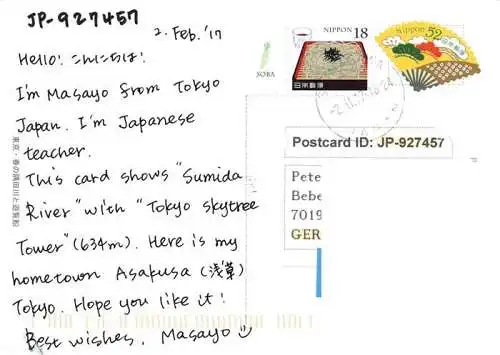 JP-927457
2. Feb. '17
Hello! こんにちは!
I'm Masayo from Tokyo
Japan. I'm Japanese
teacher.
This card shows "Sumida
River" with "Tokyo skytree
Tower" (634m). Here is my
hometown Asakusa (浅草)
Tokyo. Hope you like it!
Best wishes, Masayo
東京・春の隅田川と遊覧船
SOBA
NIPPON 18
日本郵便
Nippon 52
Postcard ID: JP-927457
Pete
Bebe
7019
GER